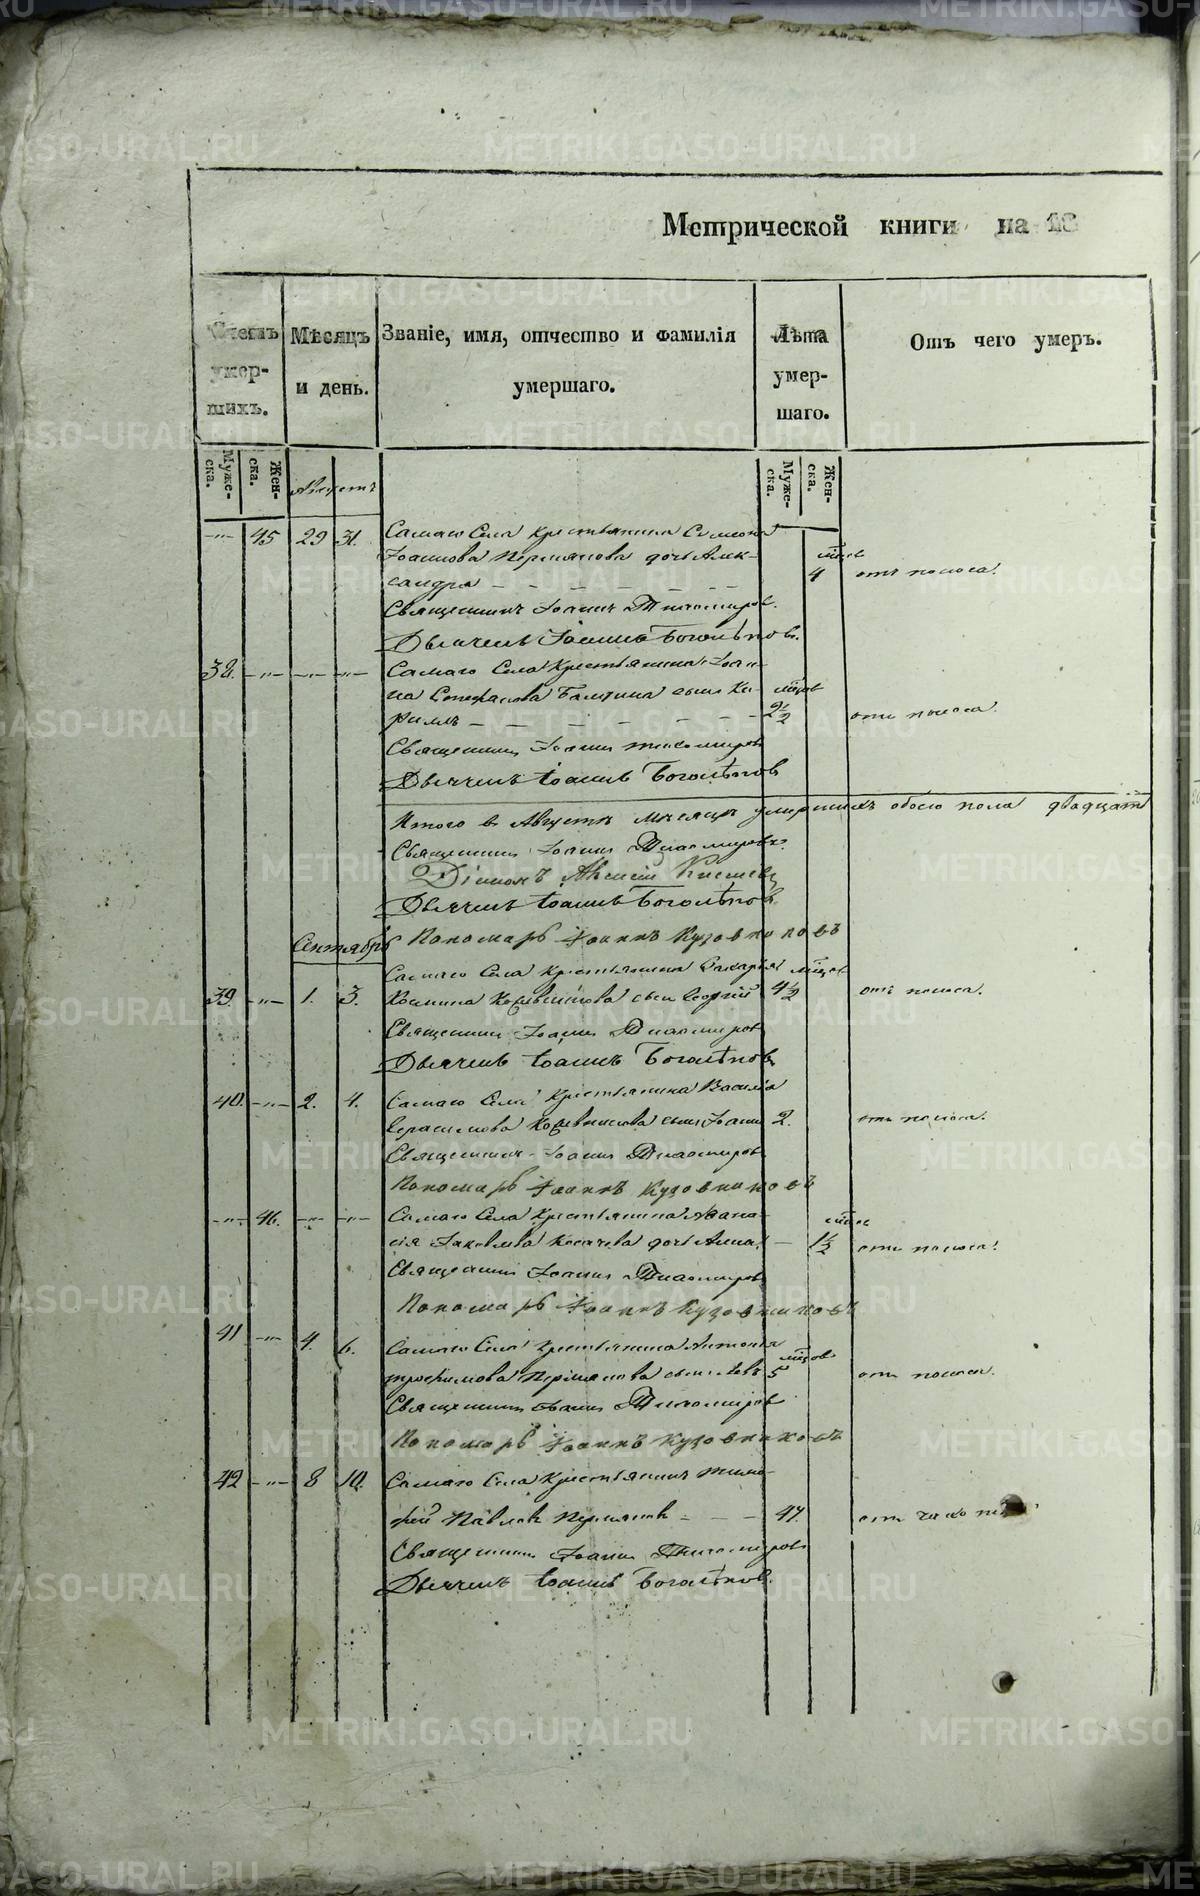 Метрической книги на 18
Счетъ умер-шихъ.
Мѣсяцъ и день.
Званіе, имя, отчество и фамилія умершаго.
Лѣта умер-шаго.
Отъ чего умеръ.
Муже-ска.
Жен-ска.
Муже-ска.
Жен-ска.
Августъ
45 29 31. Самаго Села Крестьянина Симеона
Іоаннова Пермякова дочь Алек-
сандра 4 отъ поноса.
Священникъ Іоаннъ Тихомировъ.
Дьячекъ Іоаннъ Боголѣповъ.
38. Самаго Села Крестьянина Іоан-
на Стефанова сынъ Ки-
риллъ 2½ отъ поноса.
Священникъ Іоаннъ Тихомировъ
Дьячекъ Іоаннъ Боголѣповъ
Итого въ Августѣ мѣсяцѣ умершихъ обоего пола двадцать
Священникъ Іоаннъ Тихомировъ.
Діаконъ
Дьячекъ Іоаннъ Боголѣповъ
Сентябрь Пономарь Іоаннъ Кузовниковъ
Самаго Села Крестьянина Захарія
39. 1. 3. Космина Кожевникова сынъ Георгій 4½ отъ поноса.
Священникъ Іоаннъ Тихомировъ
Дьячекъ Іоаннъ Боголѣповъ
40. 2. 4. Самаго Села Крестьянина Василія
Герасимова Кожевникова сынъ Іоаннъ 2. отъ поноса.
Священникъ Іоаннъ Тихомировъ
Пономарь Іоаннъ Кузовниковъ
46. Самаго Села Крестьянина Афана-
сія Яковлева дочь Анна 1½ отъ поноса.
Священникъ Іоаннъ Тихомировъ
Пономарь Іоаннъ Кузовниковъ
41 4. 6. Самаго Села Крестьянина Антонія
Трофимова Пермякова сынъ 5 отъ поноса.
Священникъ Іоаннъ Тихомировъ
Пономарь Іоаннъ Кузовниковъ
42 8 10. Самаго Села Крестьянинъ Тимо-
фей Павловъ Пермяковъ 47. отъ
Священникъ Іоаннъ Тихомировъ
Дьячекъ Іоаннъ Боголѣповъ.
METRIKI.GASO-URAL.RU